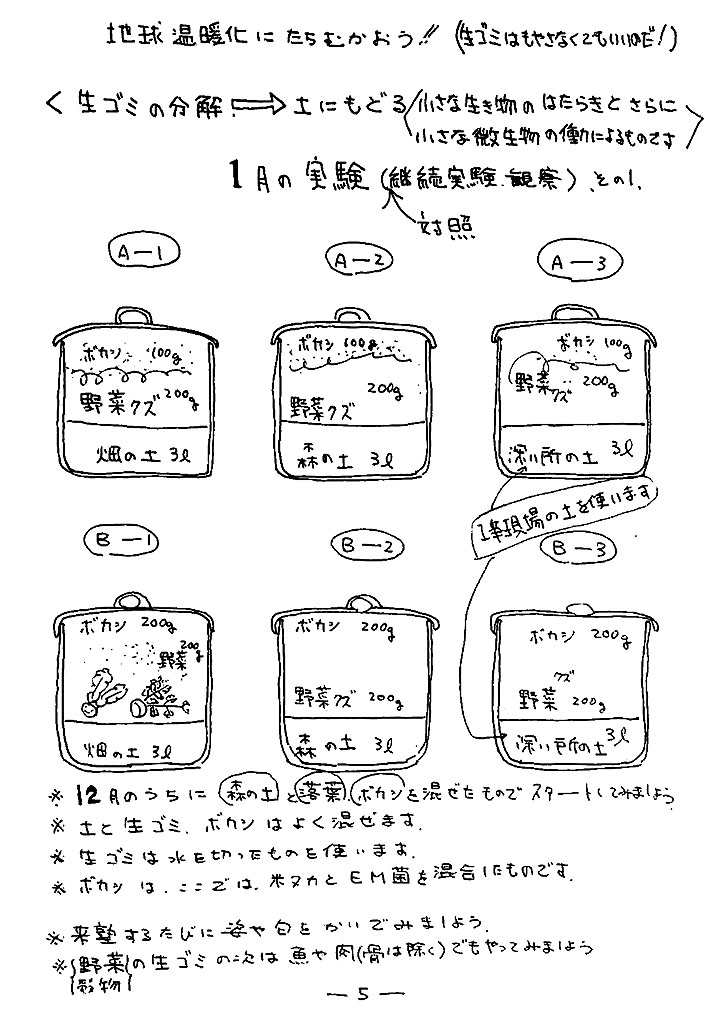 地球温暖化にたちむかおう!! (生ゴミはもやさなくてもいいのだ!)
< 生ゴミの分解 ⇒ 土にもどる 〈小さな生き物のはたらきとさらに
小さな微生物の働によるものです〉
1月の実験 (継続実験.観察) その1.
対照
A-1 A-2 A-3
ボカシ 100g ボカシ 100g ボカシ 100g
野菜クズ 200g 野菜クズ 200g 野菜クズ 200g
畑の土 3ℓ 森の土 3ℓ 深い所の土 3ℓ
工事現場の土を使います
B-1 B-2 B-3
ボカシ 200g ボカシ 200g ボカシ 200g
野菜 200g 野菜クズ 200g 野菜クズ 200g
畑の土 3ℓ 森の土 3ℓ 深い所の土 3ℓ
※ 12月のうちに 森の土 と 落葉.ボカシを混ぜたもので スタートしてみましょう
※ 土と生ゴミ.ボカシはよく混ぜます.
※ 生ゴミは水を切ったものを使います.
※ ボカシは.ここでは.米ヌカとEM菌を混合したものです.
※ 来塾するたびに姿や匂をかいでみましょう.
※ {野菜 穀物} の生ゴミの次は魚や肉(骨は除く)でもやってみましょう
— 5 —